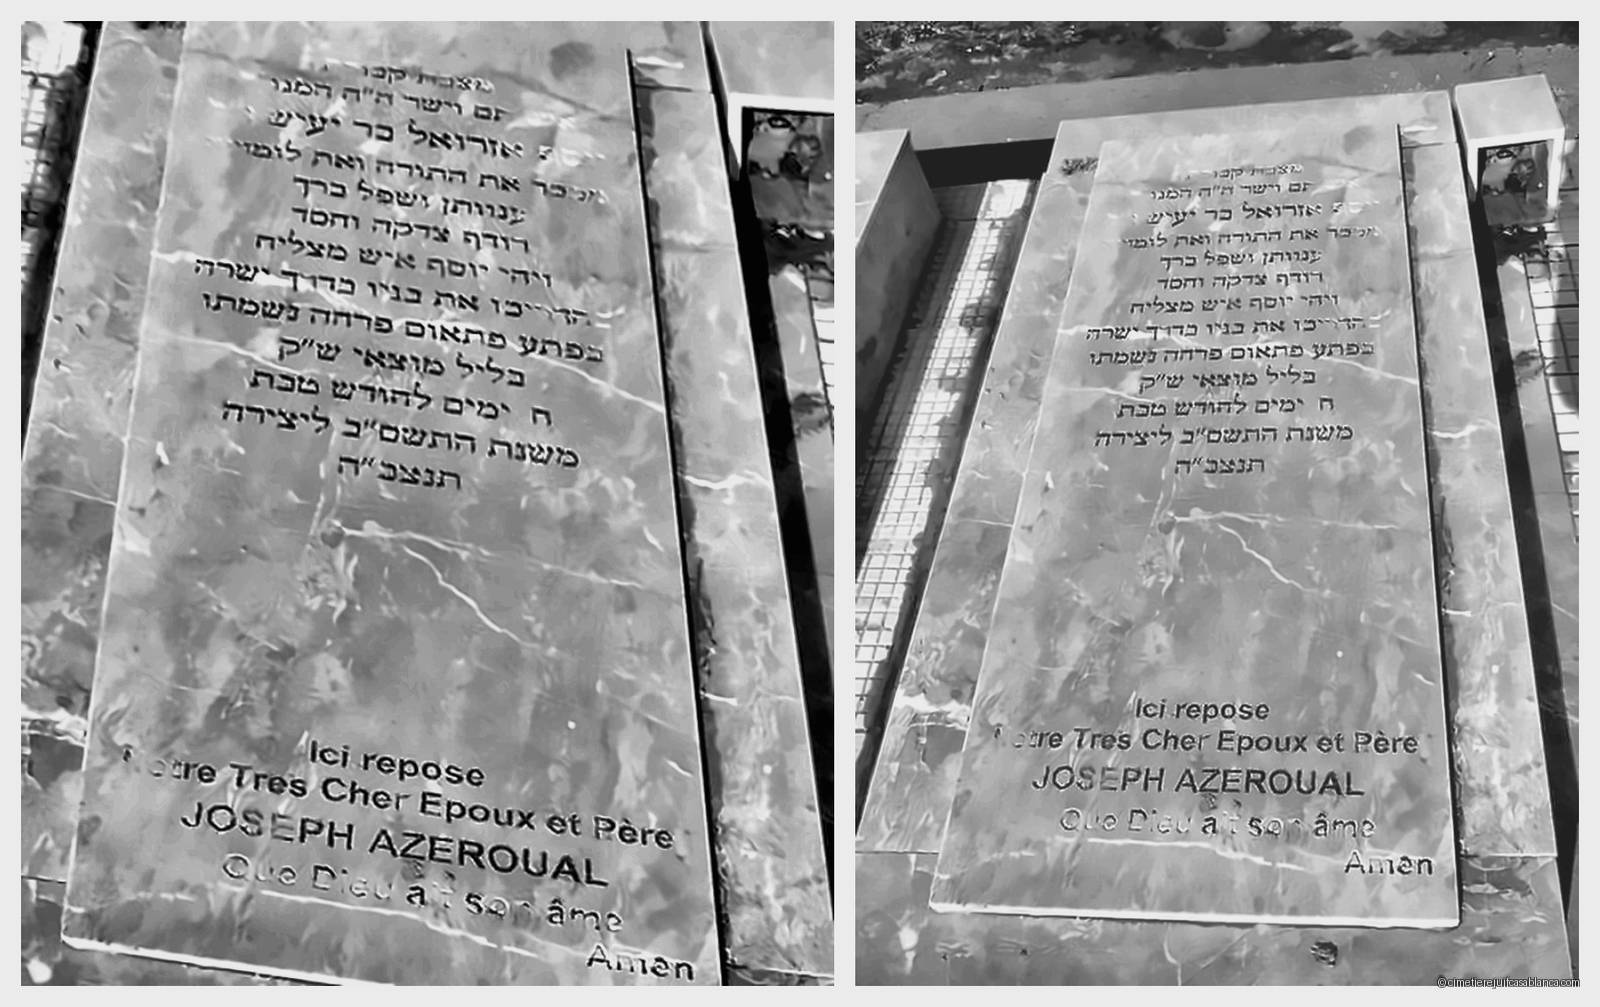 מצבת קבורת
תם וישר ה״ה המנו
יוסף אזרואל בר יעיש
מכבד את התורה ואת לומדיה
ענוותן ושפל ברך
רודף צדקה וחסד
ויהי יוסף איש מצליח
הדריכו את בניו בדרך ישרה
בפתע פתאום פרחה נשמתו
בליל מוצאי ש״ק
ח ימים לחודש טבת
משנת התשס״ב ליצירה
תנצב״ה
Ici repose
Notre Tres Cher Epoux et Père
JOSEPH AZEROUAL
Que Dieu ait son âme
Amen
מצבת קבורת
תם וישר ה״ה המנו
יוסף אזרואל בר יעיש
מכבד את התורה ואת לומדיה
ענוותן ושפל ברך
רודף צדקה וחסד
ויהי יוסף איש מצליח
הדריכו את בניו בדרך ישרה
בפתע פתאום פרחה נשמתו
בליל מוצאי ש״ק
ח ימים לחודש טבת
משנת התשס״ב ליצירה
תנצב״ה
Ici repose
Notre Tres Cher Epoux et Père
JOSEPH AZEROUAL
Que Dieu ait son âme
Amen
©cimetierejuifcasablanca.com